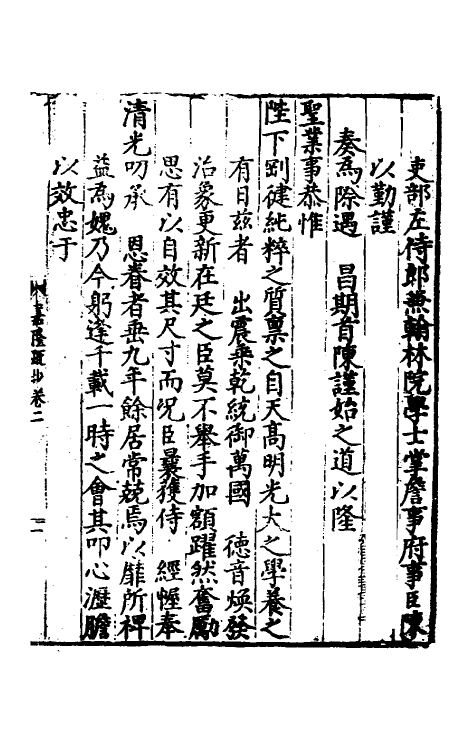 吏部左侍郎兼翰林院學士掌詹事府事臣陳
以勤謹
奏為際遇　昌期首陳謹始之道以隆
聖業事恭惟
陛下剛健純粹之質稟之自天高明光大之學養之
有日茲者　出震乘乾統御萬國　德音煥發
治象更新在廷之臣莫不舉手加額躍然奮勵
思有以自效其尺寸而況臣曩獲侍　經幄奉
清光叨承　恩眷者垂九年餘居常兢焉以靡所裨
益為媿乃今躬逢千載一時之會其叩心瀝膽
以效忠于
嘉隆疏抄卷二
二